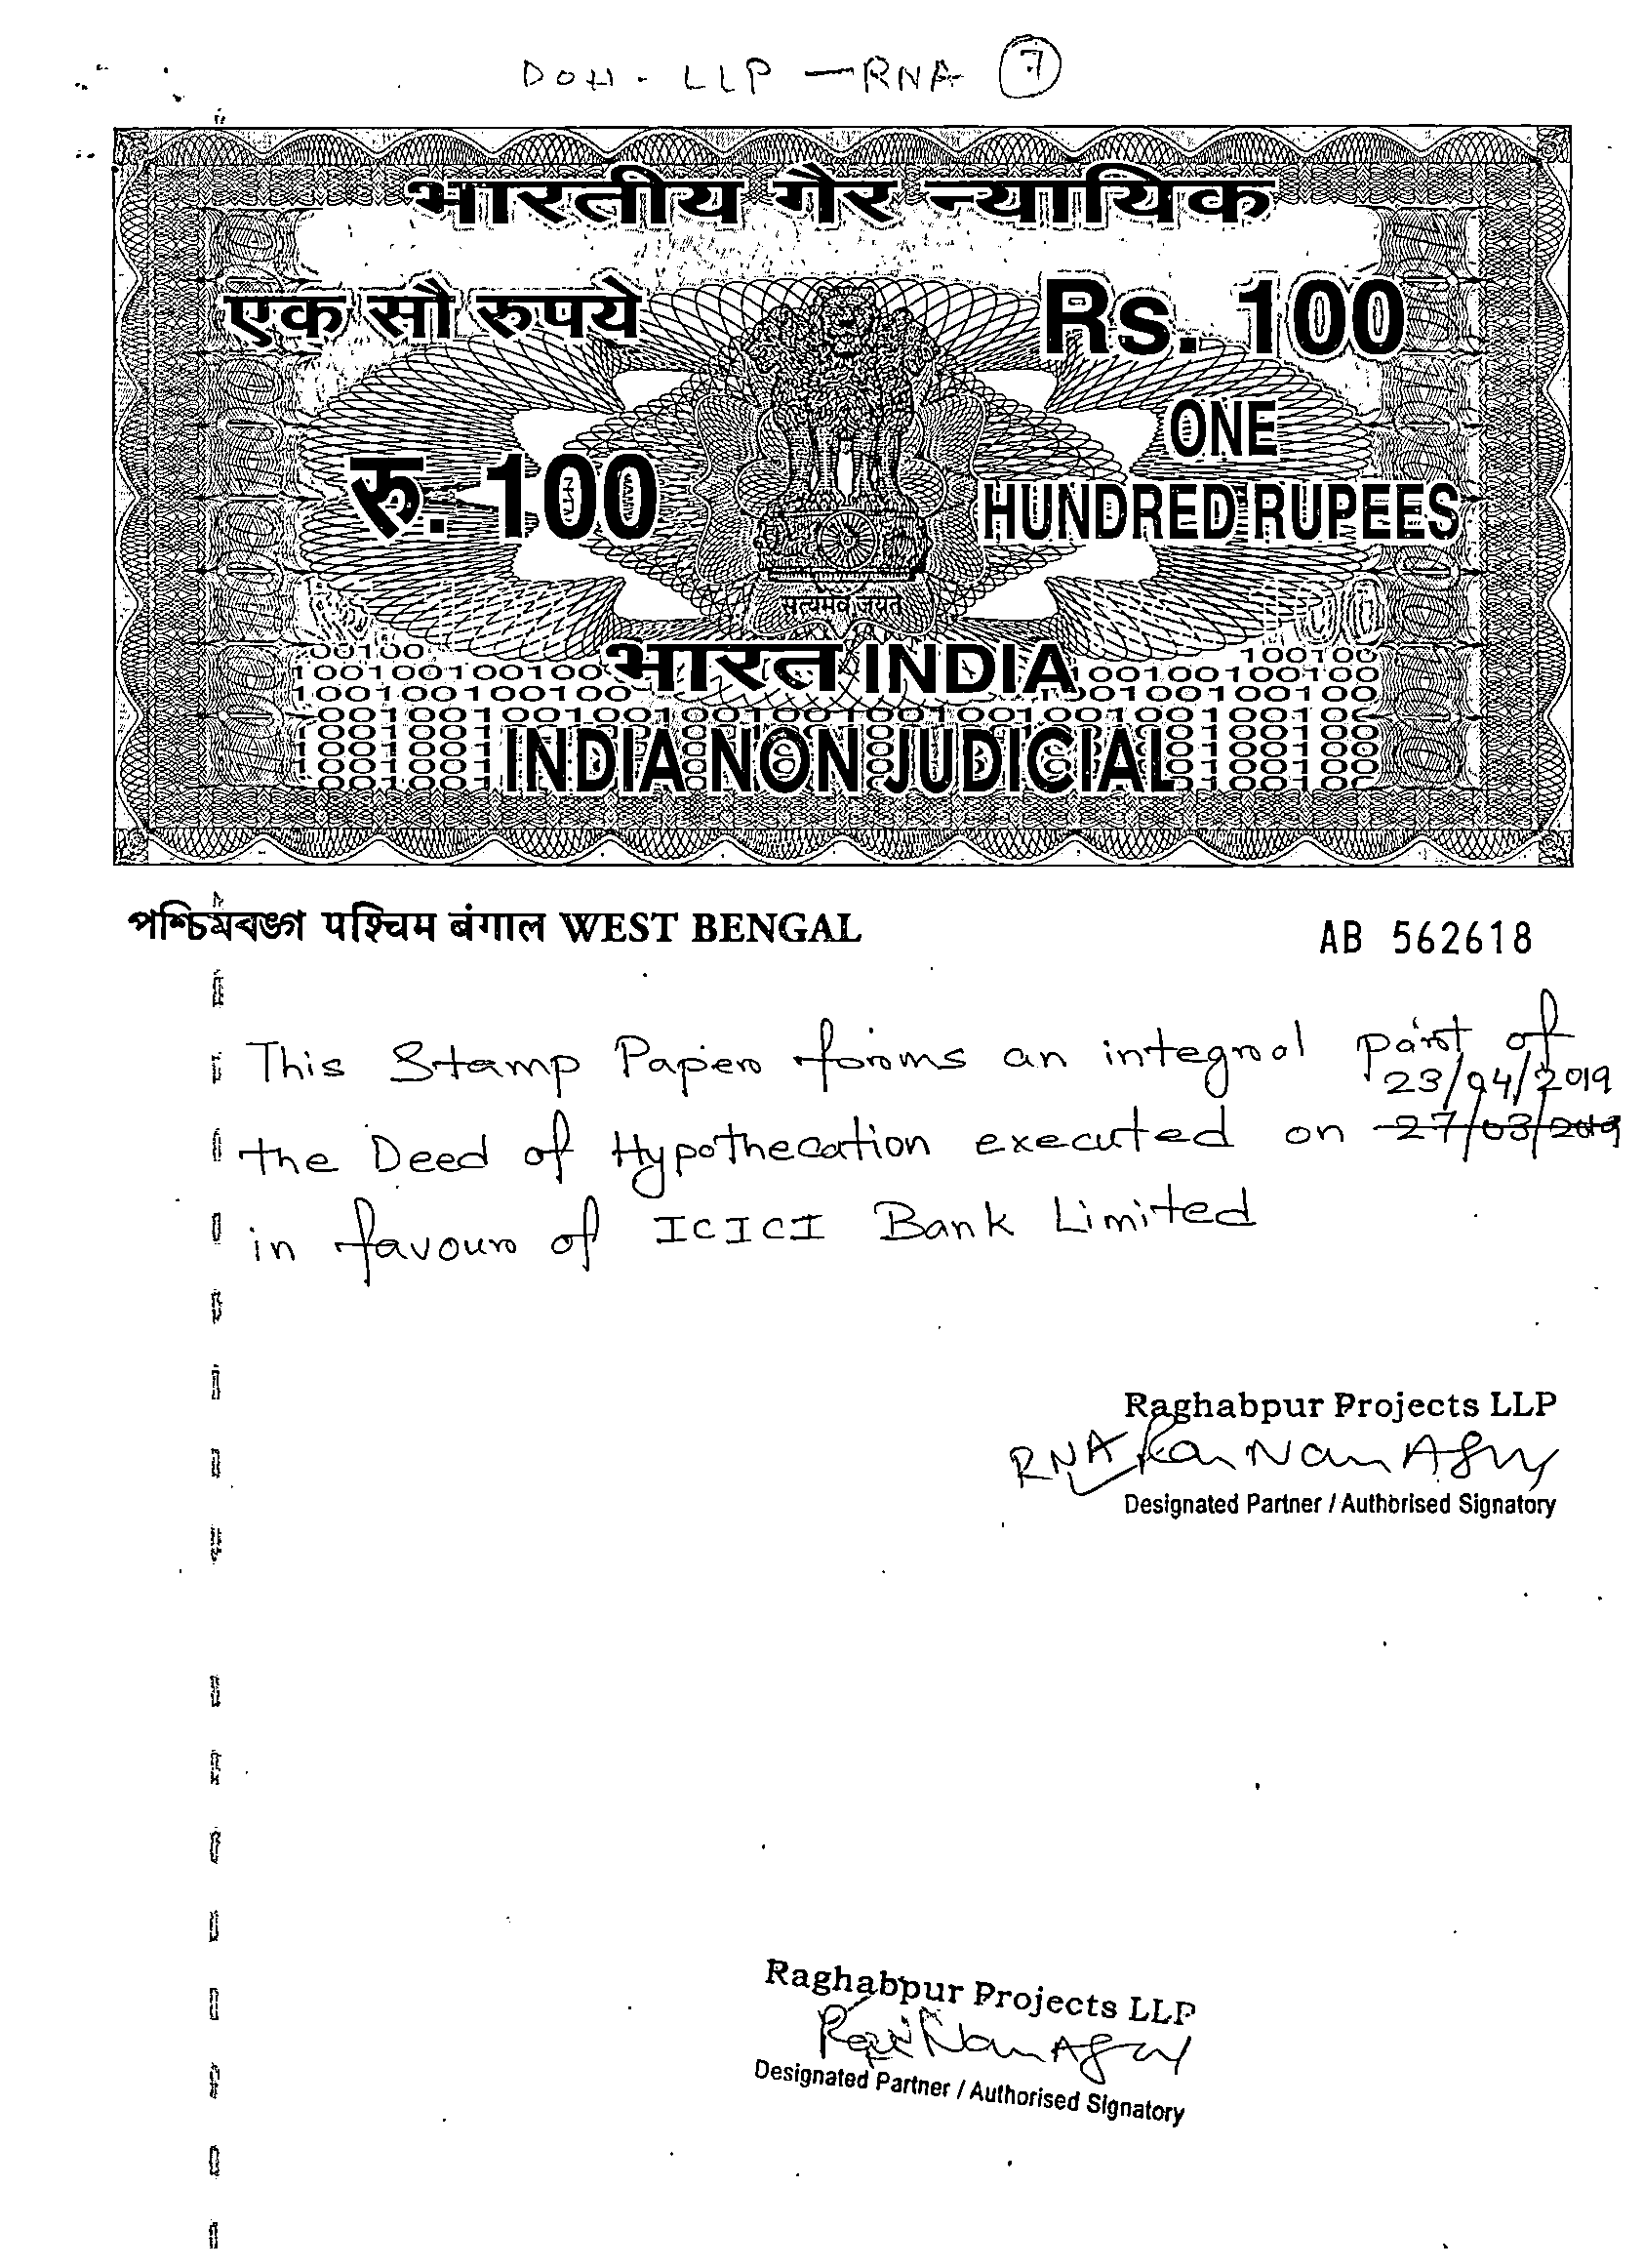 DOH - LLP - RNA 7
भारतीय गैर न्यायिक
एक सौ रुपये
Rs. 100
रु. 100
ONE
HUNDRED RUPEES
सत्यमेव जयते
भारत INDIA
INDIA NON JUDICIAL
পশ্চিমবঙ্গ पश्चिम बंगाल WEST BENGAL
AB 562618
This Stamp Paper forms an integral part of
23/04/2019
the Deed of Hypothecation executed on 27/03/2019
in favour of ICICI Bank Limited
Raghabpur Projects LLP
RNA
Designated Partner / Authorised Signatory
Raghabpur Projects LLP
Designated Partner / Authorised Signatory